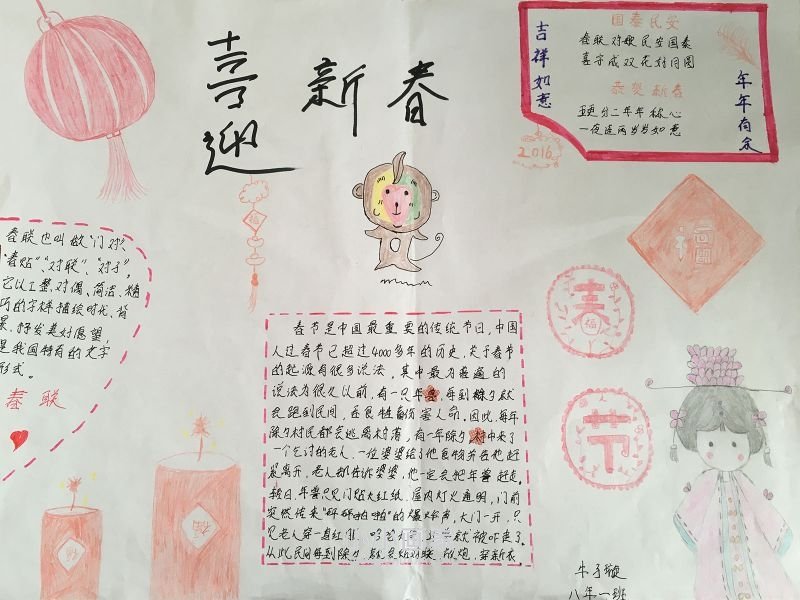 喜迎
新春
吉祥如意
国泰民安
春联对歌民安国泰
喜字成双花好月圆
恭贺新春
五更分二年年称心
一夜连两岁岁如意
年年有余
2016
福
福
春联也叫做"门对"、
"春贴"、"对联"、"对子"，
它以工整、对偶、简洁、精
巧的字样描绘时代，背
景，抒发美好愿望，
是我国特有的文字
形式。
春联
春节是中国最重要的传统节日，中国
人过春节已超过4000多年的历史，关于春节
的起源有很多说法，其中最为普遍的
说法为很久以前，有一只年兽，每到除夕就
会跑到民间，吞食牲畜伤害人命。因此，每年
除夕村民都会逃离村落，有一年除夕村中来了
一个乞讨的老人，一位婆婆给了他食物并告他赶
紧离开，老人却告诉婆婆，他一定会把年兽赶走。
年兽只见门贴大红纸，屋内灯火通明，门前
突然传来"砰砰啪啪"的爆炸声，大门一开，只
见老人穿一身红
就被吓走了。
从此民间每到除夕，
贴对联，放炮，穿新衣。
春
福
节
福
福
牛子璇
八年一班